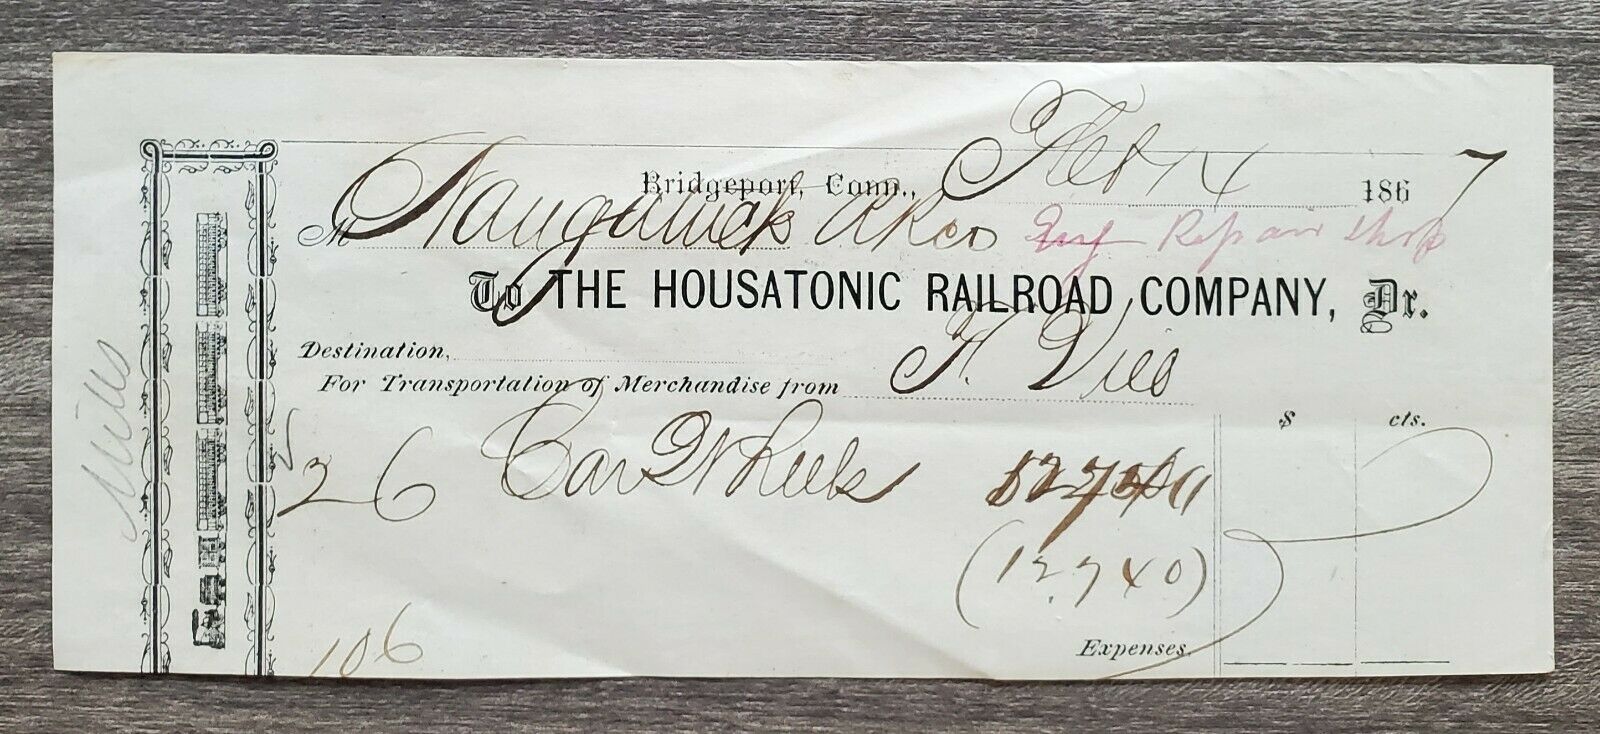 Bridgeport, Conn., Feb 14 1867
M Naugatuck RR Co Repair Shop
To THE HOUSATONIC RAILROAD COMPANY, Dr.
Destination,
For Transportation of Merchandise from F. Vill
$ cts.
26 Car Wheels
(12.740)
Expenses,
106
Mills